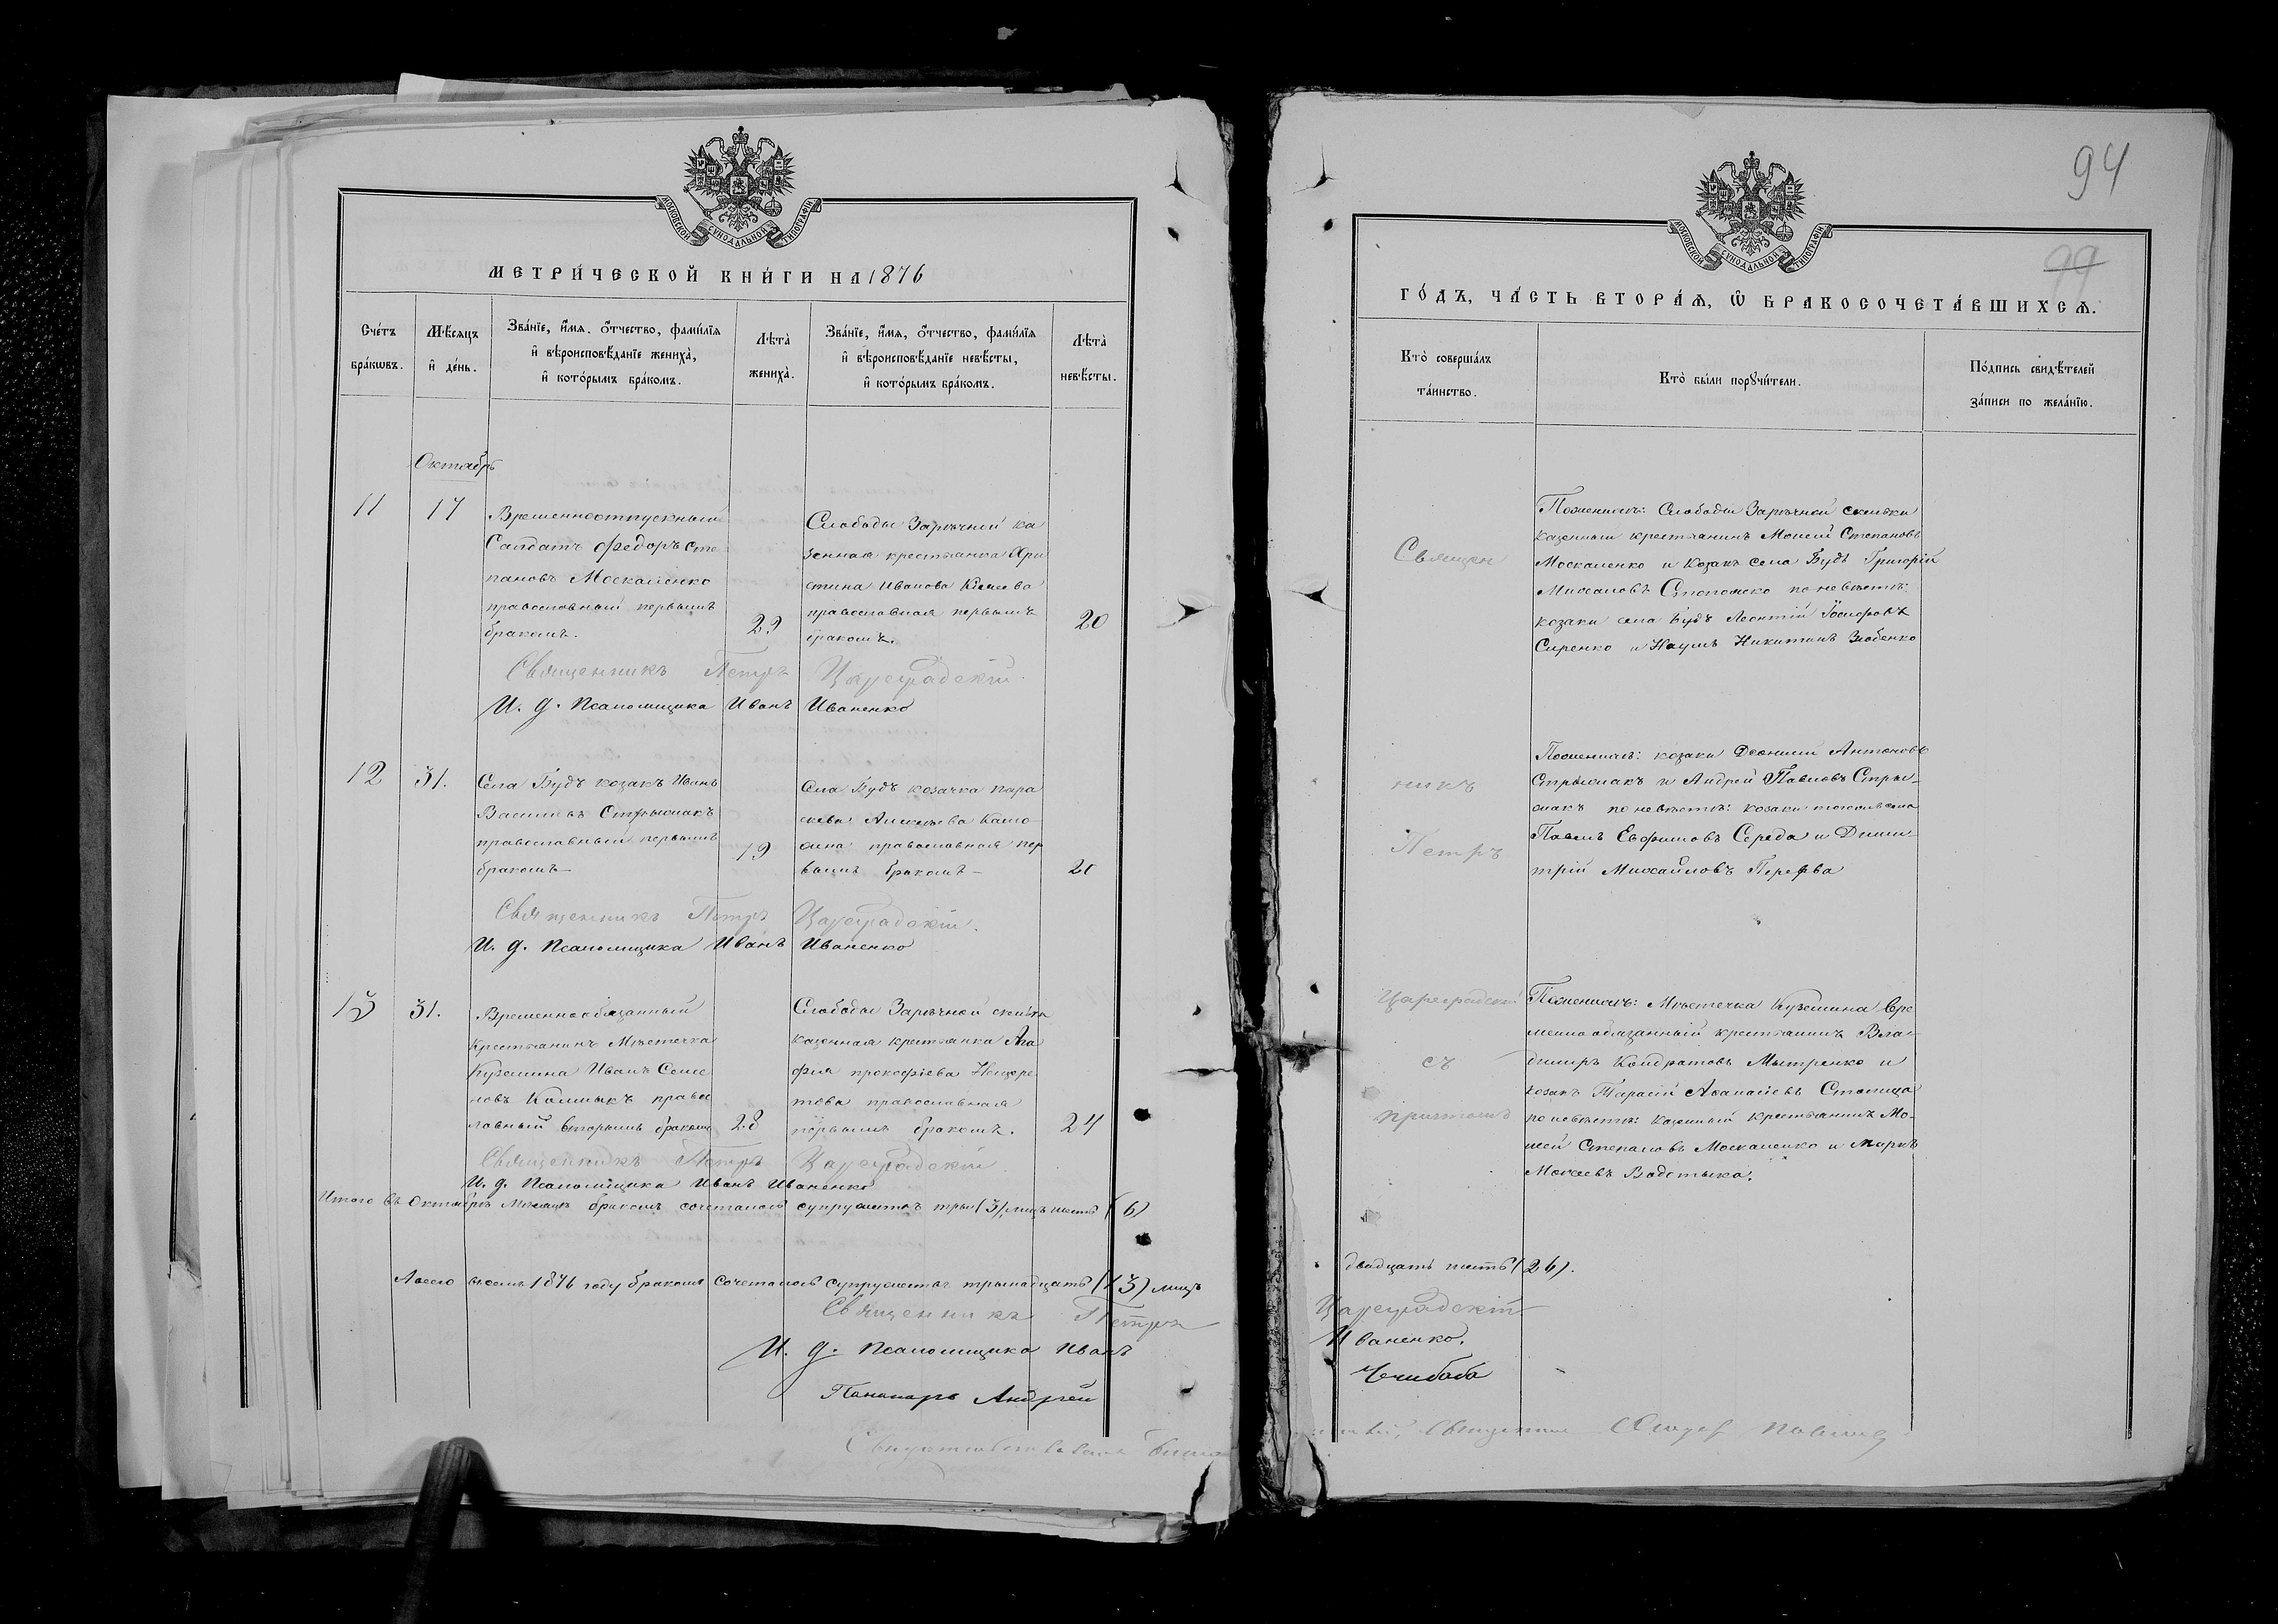 МОСКОВСКОЙ СѴНОДАЛЬНОЙ ТИПОГРАФІИ
МЕТРИ́ЧЕСКОЙ КНИ́ГИ НА 1876
Сче́тъ бра́кωвъ.
Мѣ́сяцъ и҆ де́нь.
Зва́нїе, и҆́мя, ѻ҆́тчество, фами́лїя
и҆ вѣроисповѣ́данїе жениха̀,
и҆ кото́рымъ бра́комъ.
Лѣта̀ жениха̀.
Зва́нїе, и҆́мя, ѻ҆́тчество, фами́лїя
и҆ вѣроисповѣ́данїе невѣ́сты,
и҆ кото́рымъ бра́комъ.
Лѣта̀ невѣ́сты.
Октябрь
11
17
Временноотпускный
Салдатъ Федоръ Сте
пановъ Москаленко
православный первымъ
бракомъ.
29
Слободы Зарѣчной ка
зенная крестьянка Хри
стина Иванова
православная первымъ
бракомъ.
20
Священникъ Петръ Цареградскій.
И. д. Псаломщика Иванъ Иваненко
12
31.
Села Будъ козакъ Иванъ
Василіевъ Стрыжакъ
православный первымъ
бракомъ
19
Села Будъ козачка Пара
скева Алексѣева
православная пер
вымъ бракомъ
20
Священникъ Петръ Цареградскій.
И. д. Псаломщика Иванъ Иваненко
13
31.
Временнообязанный
Крестьянинъ Мѣстечка
Куземина Иванъ Семе
новъ Калмыкъ право
лавный вторымъ бракомъ
28
Слободы Зарѣчной
казенная крестьянка Ага
фія Прокофіева
това православная
первымъ бракомъ.
24
Священникъ Петръ Цареградскій.
И. д. Псаломщика Иванъ Иваненко
Итого въ Октябрѣ Мѣсяцѣ бракомъ сочеталось супружествъ три (3), лицъ шесть (6)
А всего въ семъ 1876 году бракомъ сочеталось супружествъ тринадцать (13) лицъ
Священникъ Петръ
И. д. Псаломщика Иванъ
Пономарь Андрей
94
99
МОСКОВСКОЙ СѴНОДАЛЬНОЙ ТИПОГРАФІИ
ГО́ДЪ, ЧА́СТЬ ВТОРА́Я, Ѽ БРАКОСОЧЕТА́ВШИХСЯ.
Кто̀ соверша́лъ та́инство.
Кто̀ бы́ли порꙋчи́тели.
По́дпись свидѣ́телей
за́писи по жела́нїю.
Священ
никъ
Петръ
Цареградскій
съ
причтомъ
По женихѣ: Слободы Зарѣчной
казенный крестьянинъ Моисей Степановъ
Москаленко и Козакъ села Будъ Григорій
Михаиловъ по невѣстѣ:
козаки села Будъ Леонтій Іосифовъ
Сиренко и Наумъ Никитинъ Зюбенко
По женихѣ: козаки Діонисій Антоновъ
Стрыжакъ и Андрей Павловъ Стры-
жакъ по невѣстѣ: козаки тогожъ села
Павелъ Евфимовъ Середа и Дими-
трій Михайловъ Перерва
По женихѣ: Мѣстечка Куземина вре
менно обязанный крестьянинъ Вла-
димиръ Кондратовъ Мытренко и
козакъ Тарасій Аѳанасіевъ Столица
по невѣстѣ: казенный крестьянинъ Мо-
исей Степановъ Москаленко и Маркъ
Моисеевъ
двадцать шесть (26).
Цареградскій
Иваненко.
Чечибаба